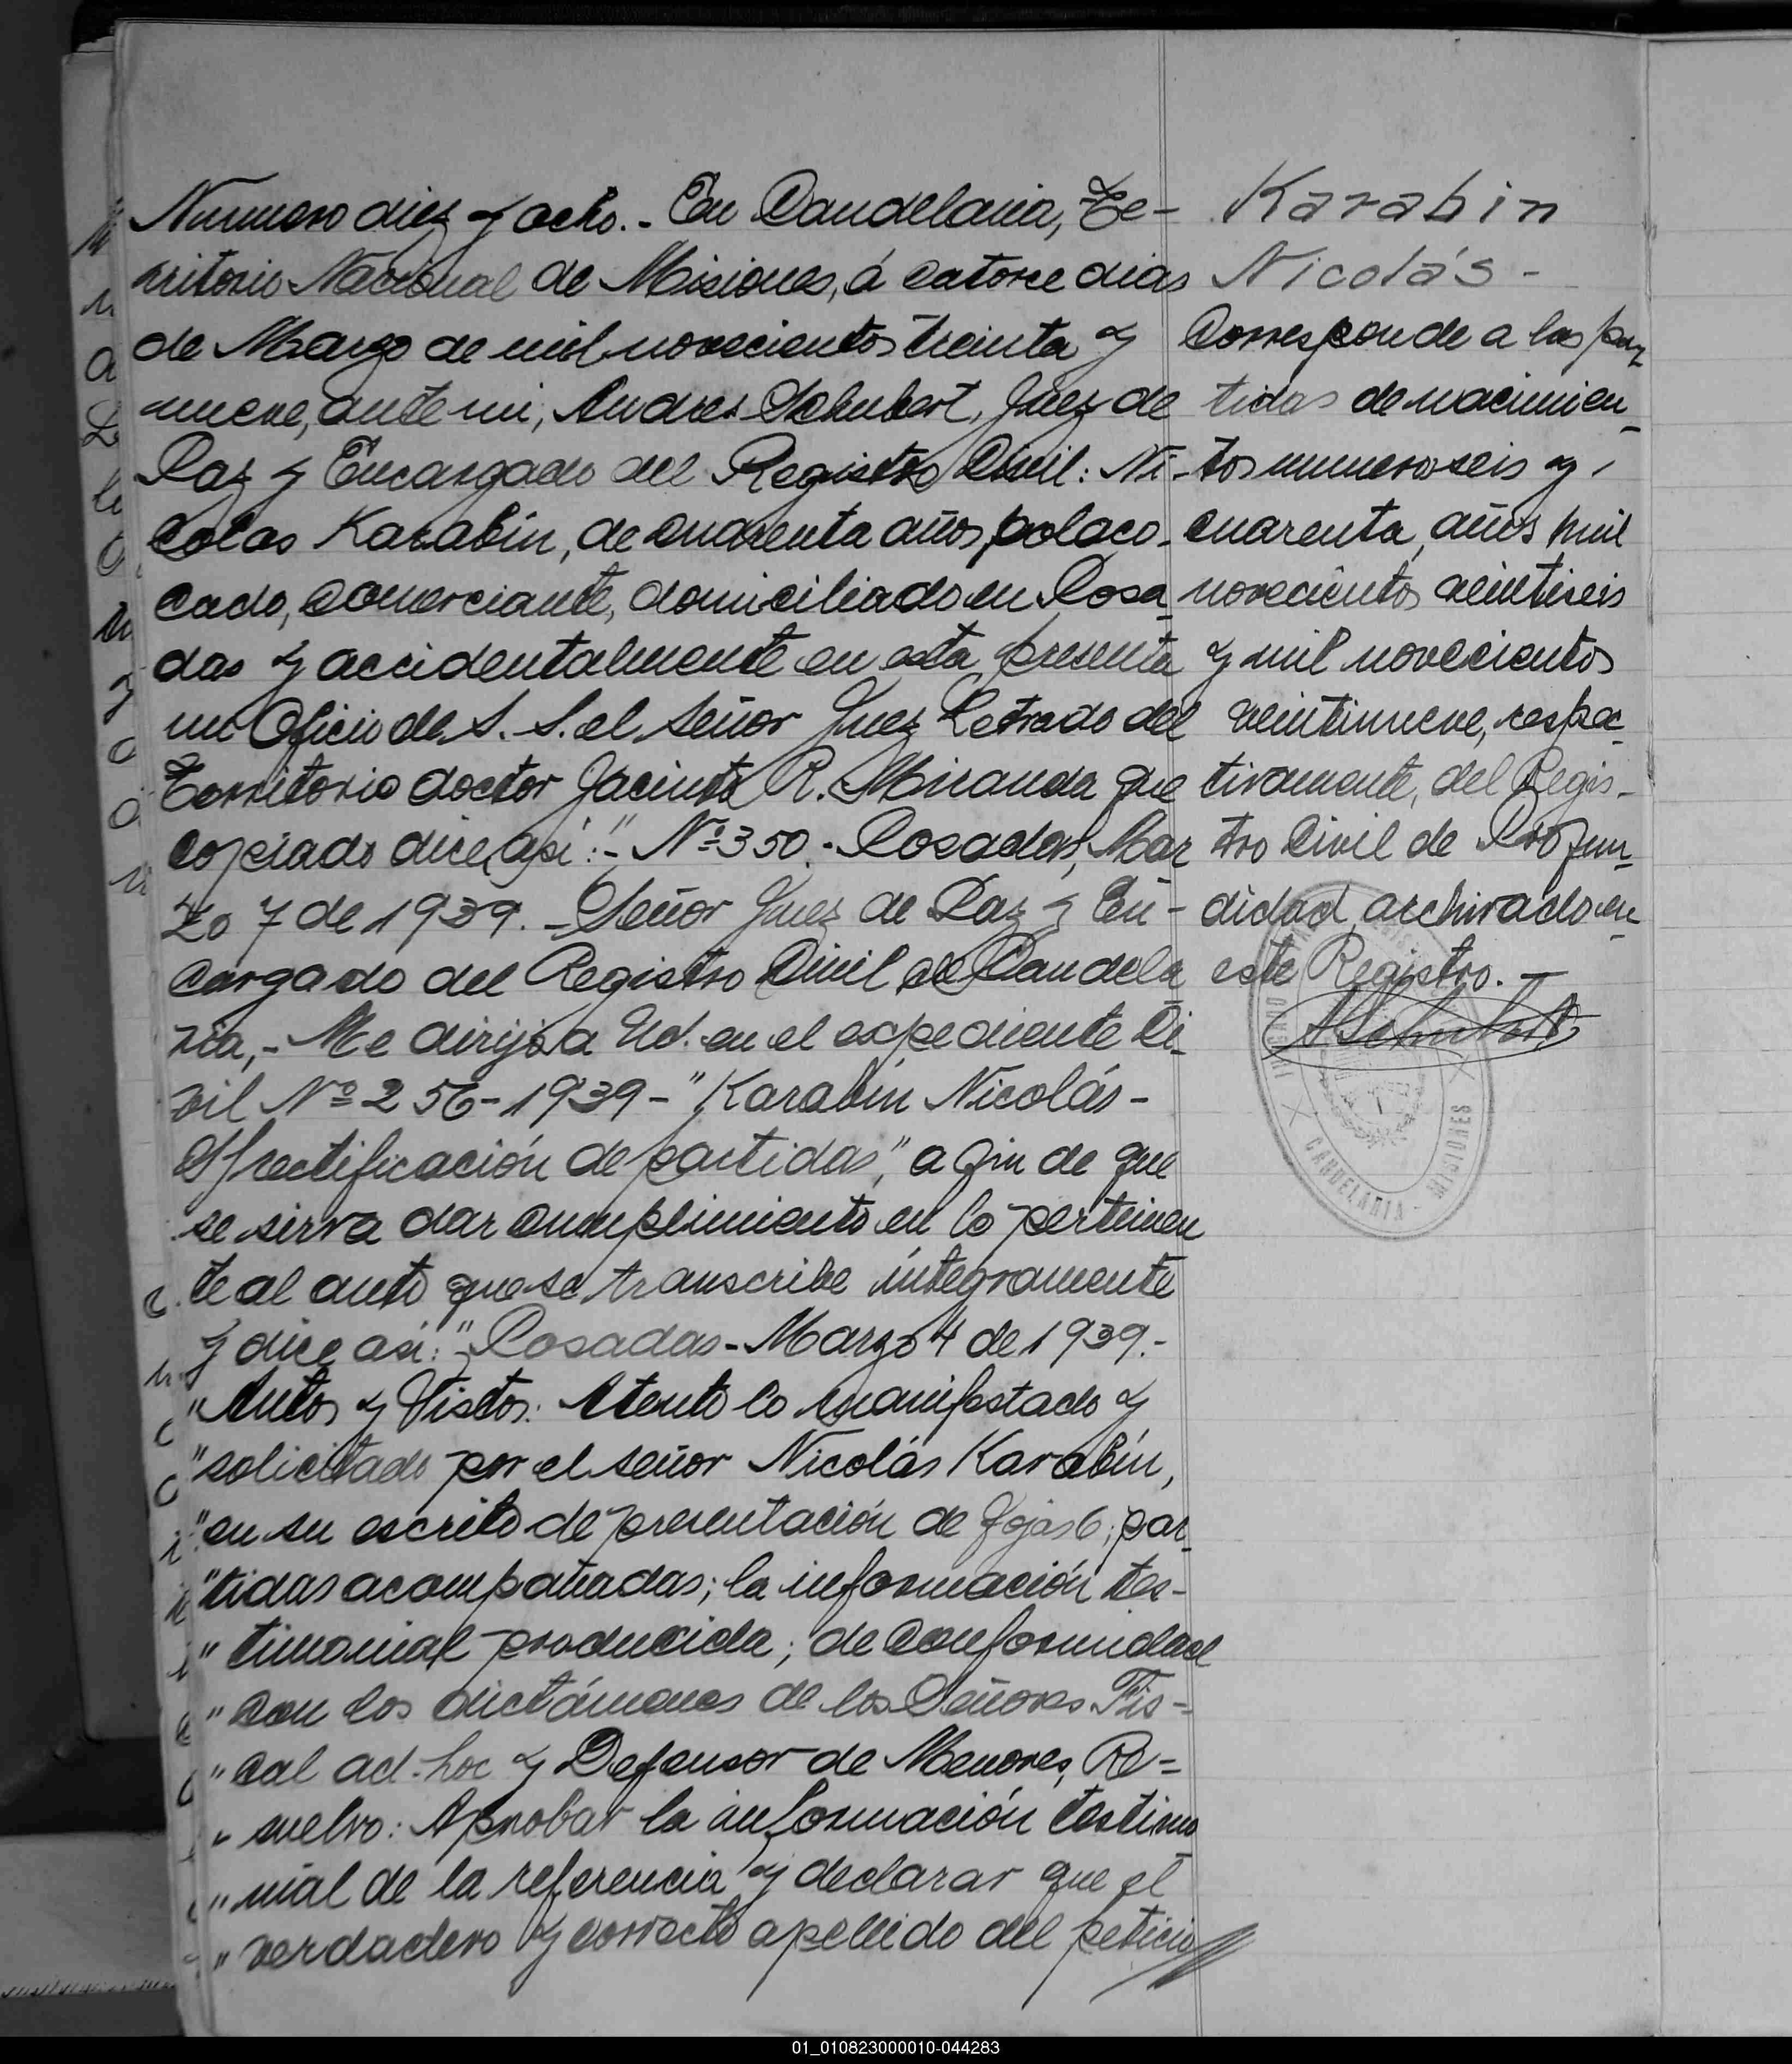 Numero diez y ocho.- En Candelaria, Te-
rritorio Nacional de Misiones, á catorce dias
de Marzo de mil novecientos treinta y
nueve, ante mi, Andres Schubert, Juez de
Paz y Encargado del Registro Civil: Ni-
colas Karabin, de cuarenta años, polaco,
cado, comerciante, domiciliado en Posa
das y accidentalmente en esta presenta
un Oficio de S. S. el señor Juez Letrado del
Territorio doctor Jacinto R. Miranda que
copiado dice asi:"- Nº 350.- Posadas, Mar
zo 7 de 1939.- Señor Juez de Paz y En-
cargado del Registro Civil de Candela
ria,- Me dirijo a Ud. en el expediente Ci-
vil Nº 256-1939-"Karabin Nicolás-
S/rectificación de partidas", a fin de que
se sirva dar cumplimiento en lo pertinen
te al auto que se transcribe íntegramente
y dice asi:"- Posadas- Marzo 4 de 1939.-
"Autos y Vistos: Atento lo manifestado y
"solicitado por el señor Nicolás Karabín,
"en su escrito de presentación de fojas 6; par
"tidas acompañadas; la información tes-
"timonial producida; de conformidad
"con los dictámenes de los Señores Fis-
"cal ad-hoc y Defensor de Menores, Re=
"suelvo: Aprobar la información testimo
"nial de la referencia y declarar que el
"verdadero y correcto apellido del peticio
Karabin
Nicolás-
Corresponde a las par
tidas de nacimien
tos numeros seis y
cuarenta, años mil
novecientos veintiseis
y mil novecientos
veintinueve, respec
tivamente, del Regis-
tro Civil de Profun
didad, archivado en
este Registro.-
ASchubert
CANDELARIA - MISIONES
01_010823000010-044283